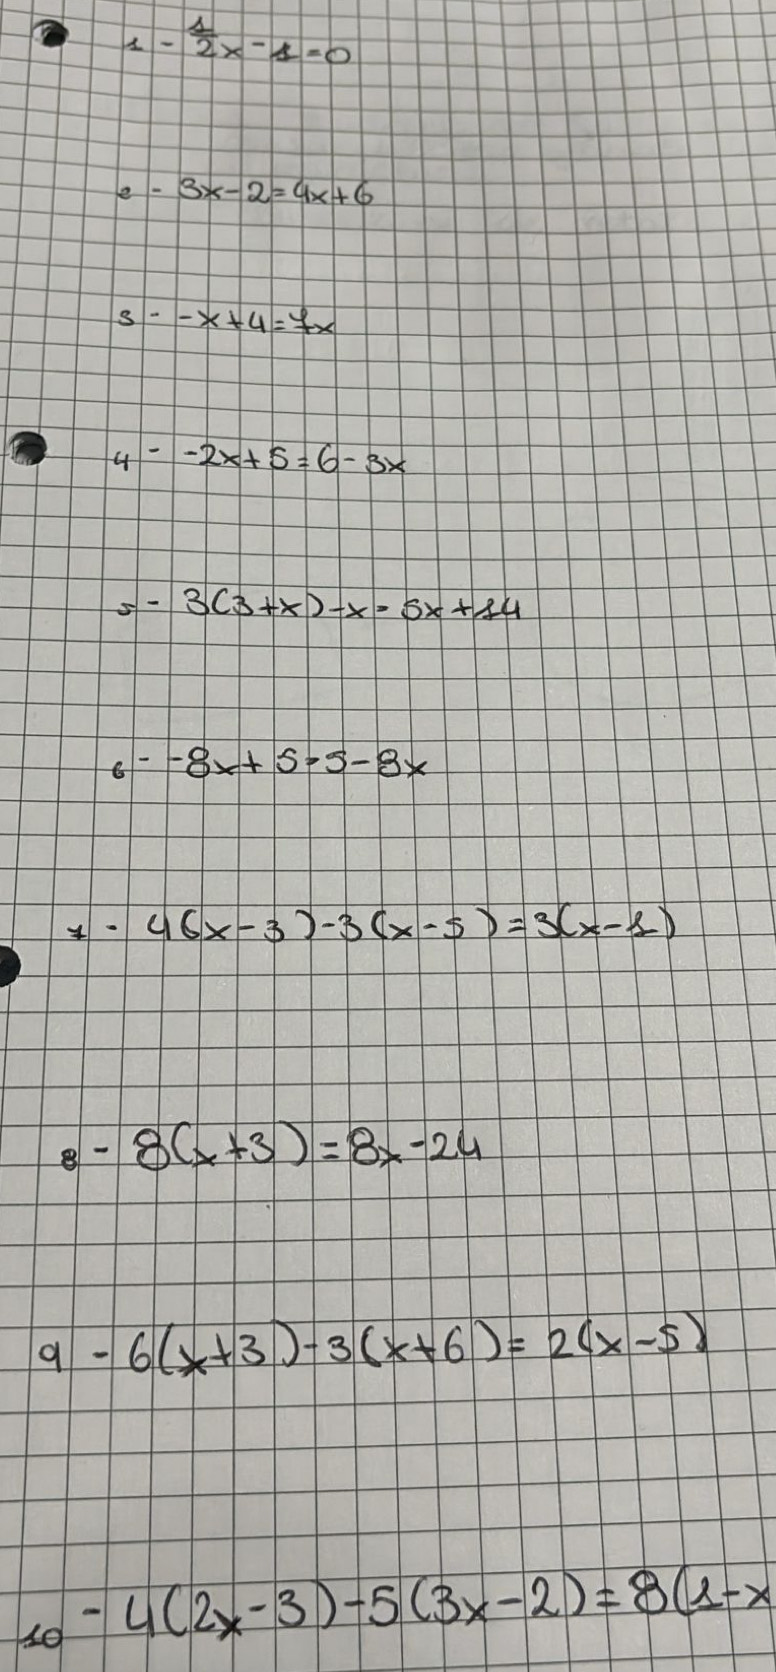 1 - 1/2x - 1 = 0
2 - 3x - 2 = 4x + 6
3 - -x + 4 = 7x
4 - -2x + 5 = 6 - 3x
5 - 3(3+x) - x = 5x + 14
6 - -8x + 5 = 5 - 8x
7 - 4(x-3) - 3(x-5) = 3(x-1)
8 - 8(x+3) = 8x - 24
9 - 6(x+3) - 3(x+6) = 2(x-5)
10 - 4(2x-3) - 5(3x-2) = 8(1-x